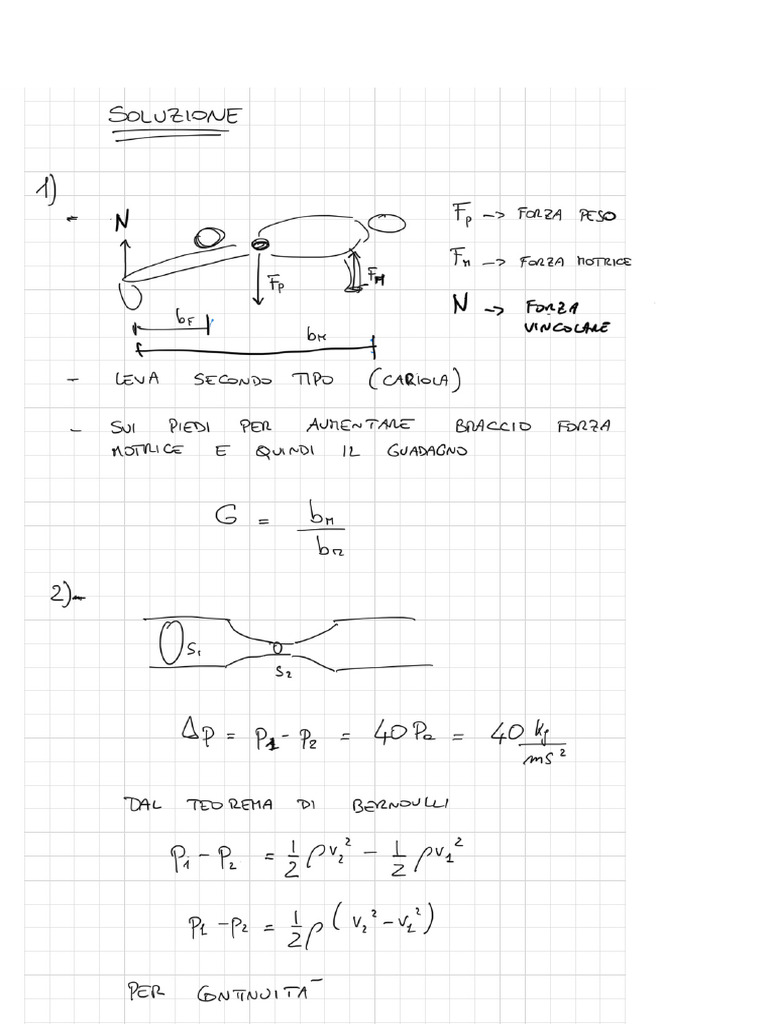 SOLUZIONE
1)
- N
F_P
F_M
b_F
b_M
F_P -> FORZA PESO
F_M -> FORZA MOTRICE
N -> FORZA
VINCOLARE
- LEVA SECONDO TIPO (CARIOLA)
- SUI PIEDI PER AUMENTARE BRACCIO FORZA
MOTRICE E QUINDI IL GUADAGNO
G = b_M / b_R
2)-
S_1
S_2
Δp = P_1 - P_2 = 40 Pa = 40 kg / ms²
DAL TEOREMA DI BERNOULLI
P_1 - P_2 = 1/2 ρv_2² - 1/2 ρv_1²
P_1 - P_2 = 1/2 ρ (v_2² - v_1²)
PER CONTINUITA'